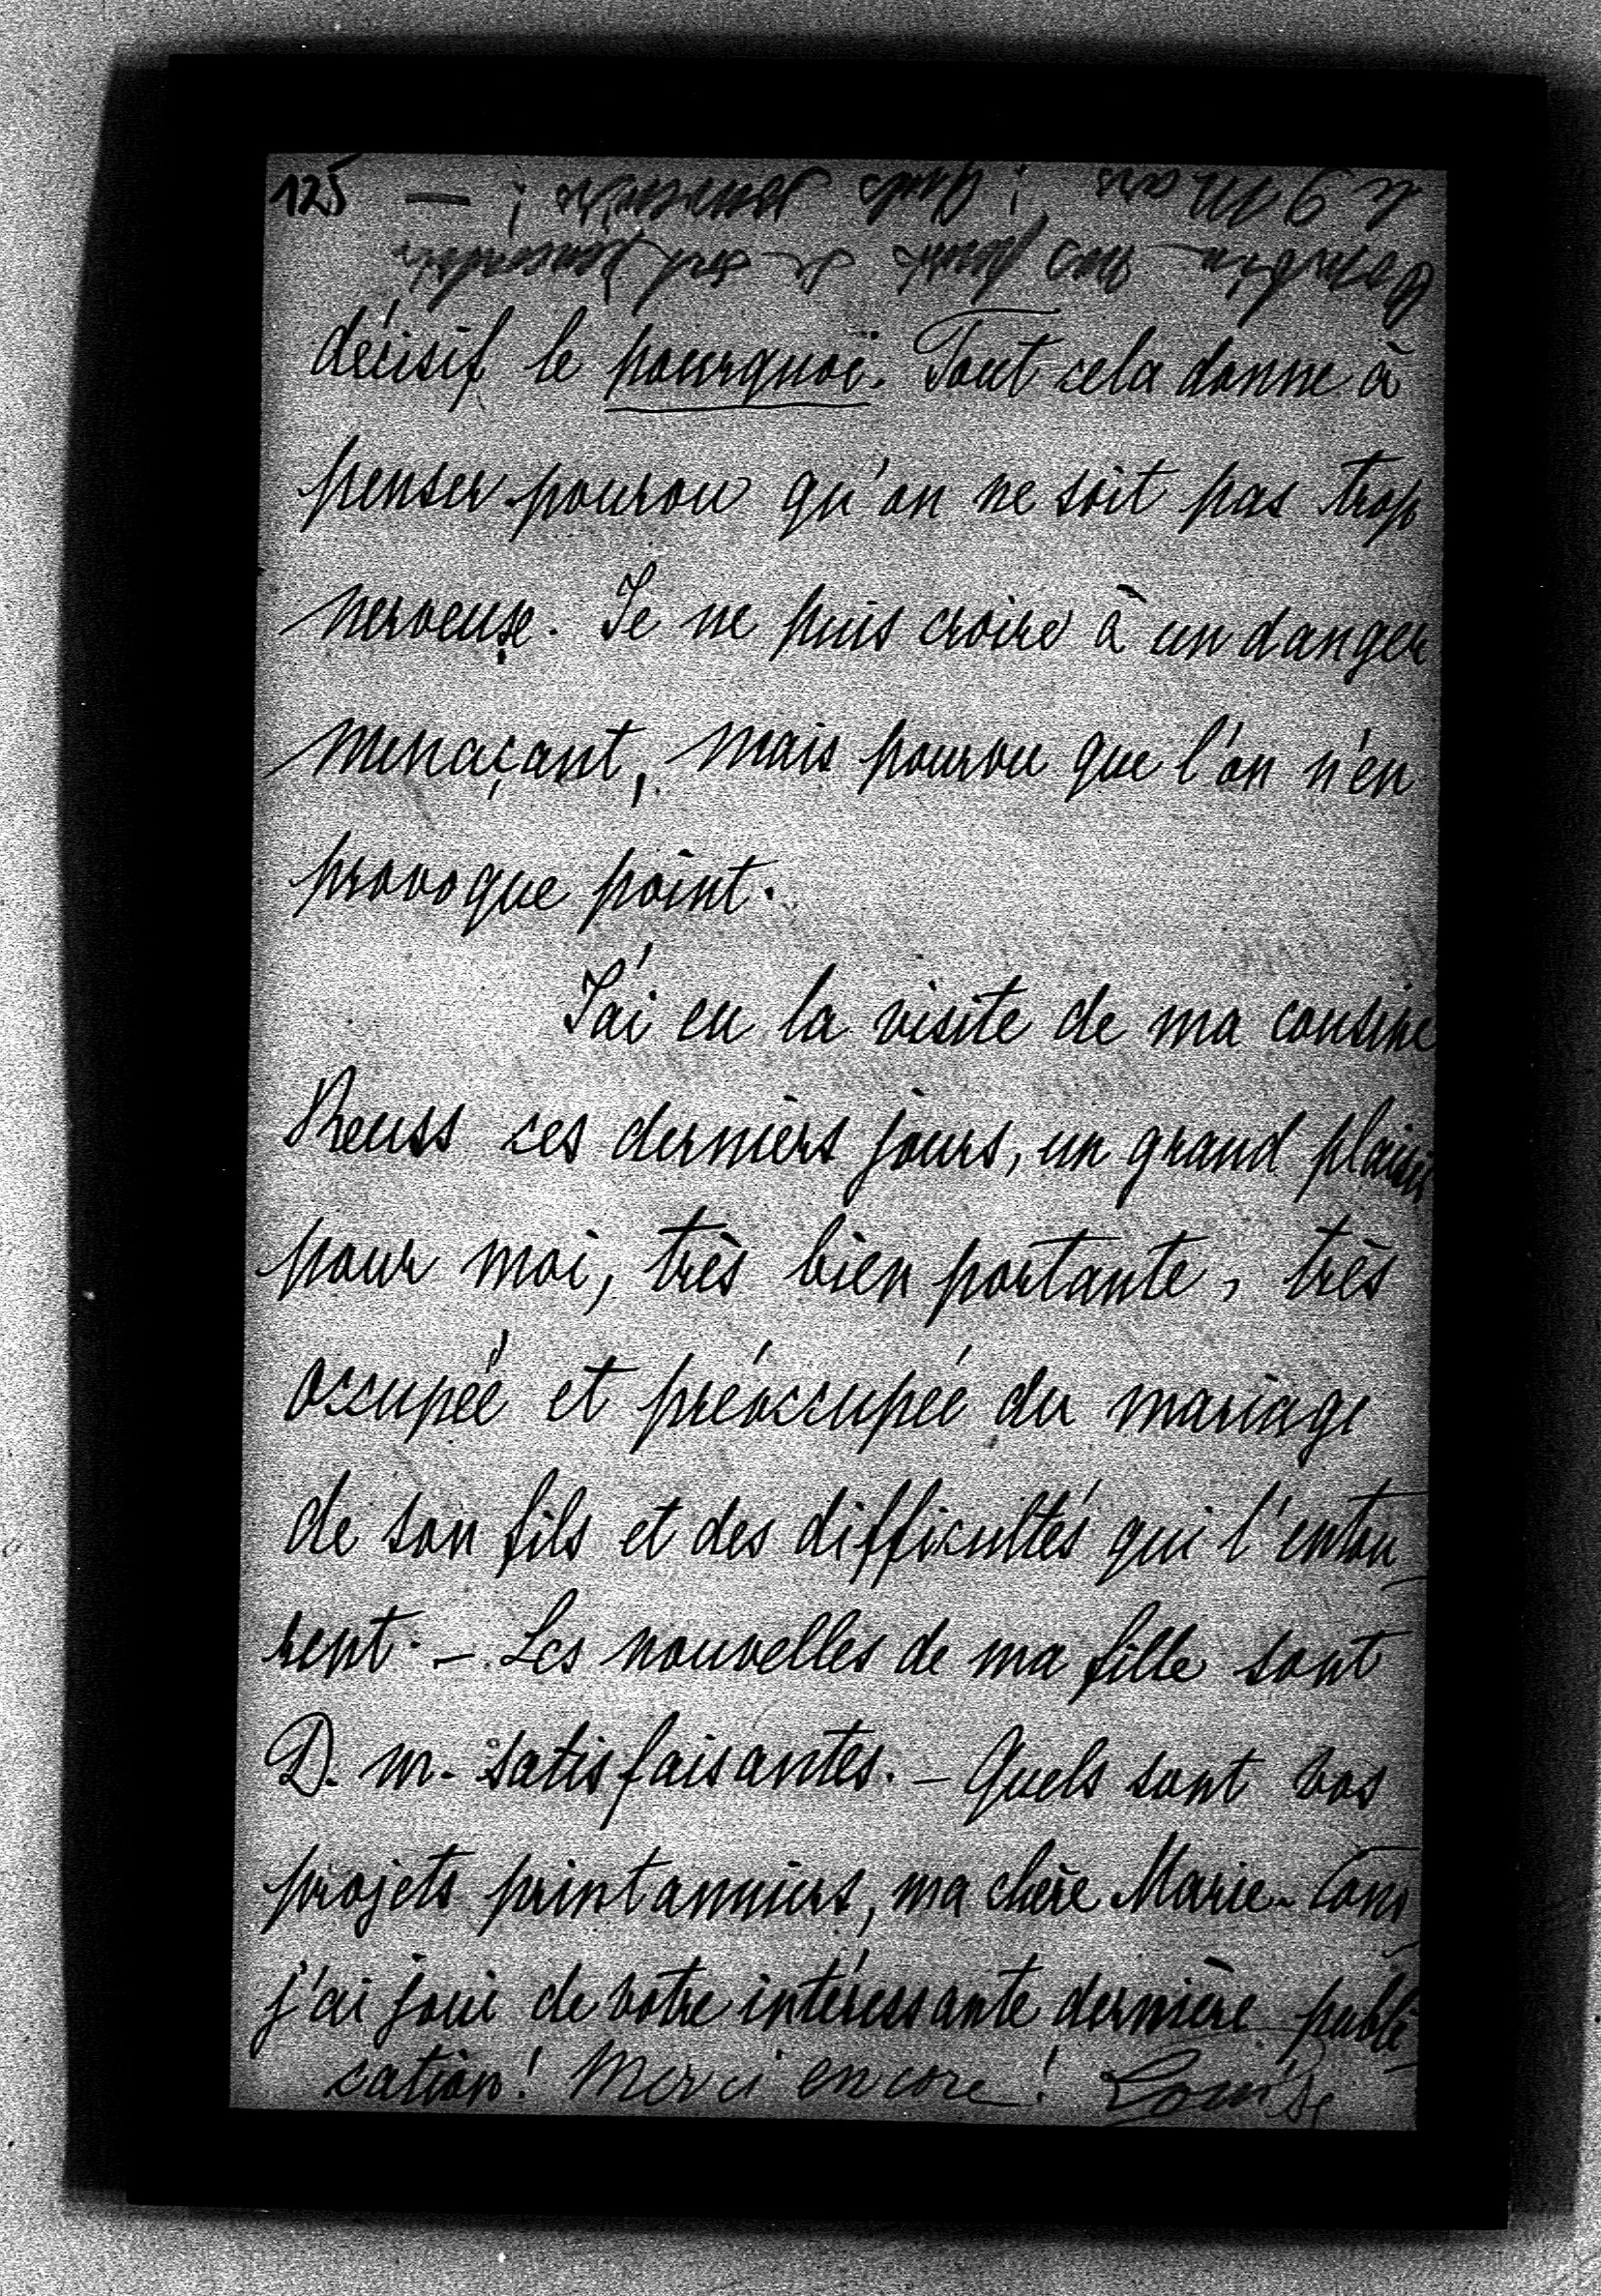 125
le 9 Mars ! quels souvenirs ! —
décisif le pourquoi. Tout cela donne à
penser pourvu qu'on ne soit pas trop
nerveuse. Je ne puis croire à un danger
menaçant, mais pourvu que l'on n'en
provoque point.
J'ai eu la visite de ma cousine
Reuss ces derniers jours, un grand plaisir
pour moi, très bien portante, très
occupée et préoccupée du mariage
de son fils et des difficultés qui l'entou
rent. — Les nouvelles de ma fille sont
D. m. satisfaisantes. — Quels sont vos
projets printanniers, ma chère Marie –
j'ai joui de votre intéressante dernière publi
cation! Merci encore! Louise